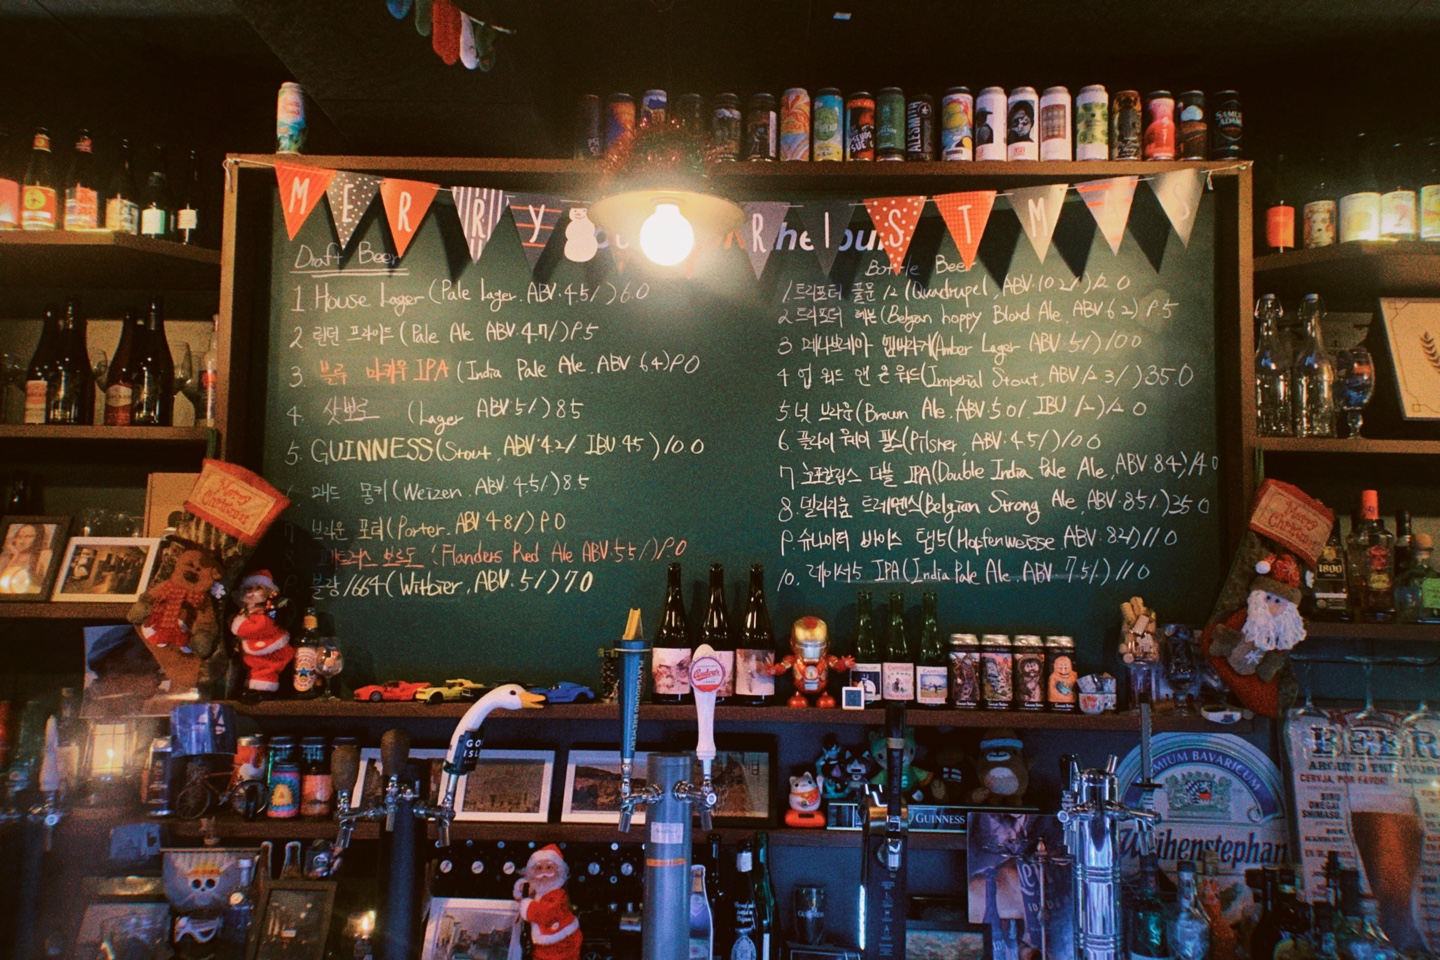 MERRY
R I STM S
Draft Beer
1 House Lager (Pale Lager. ABV 4.5%) 6.0
2 런던 프라이드 (Pale Ale ABV 4.7%) 9.5
3. 블루 마카우 IPA (India Pale Ale. ABV 6.4) 9.0
4. 삿뽀로 (Lager ABV 5%) 8.5
5. GUINNESS (Stout, ABV 4.2% IBU 45) 10.0
몽키 (Weizen. ABV. 4.5%) 8.5
브라운 포터 (Porter. ABV 4.8%) 9.0
(Flanders Red Ale ABV. 5.5%) 9.0
블랑 1664 (Witbier, ABV. 5%) 7.0
Bottle Beer
1. 트리포터 12 (Quadrupel, ABV. 10.2%) 12.0
2. 트리포터 (Belgian hoppy Blond Ale, ABV 6.2) 9.5
3 (Amber Lager ABV 5%) 10.0
4 업 워드 앤 온 워드 (Imperial Stout, ABV 12.3%) 35.0
5. 넛 브라운 (Brown Ale. ABV. 5.0% IBU 12) 12.0
6. 플라이 웨이 필스 (Pilsner, ABV 4.5%) 10.0
7. 더블 IPA (Double India Pale Ale, ABV. 8.4) 14.0
8. 델리리움 트레멘스 (Belgian Strong Ale, ABV. 8.5%.) 25.0
9. 슈나이더 바이스 탭5 (Hopfenweisse. ABV. 8.2%) 11.0
10. 레이서5 IPA (India Pale Ale, ABV 7.5%.) 11.0
ALESMITH
SAMUEL ADAMS
Merry Christmas
Merry Christmas
1800
GUINNESS
PREMIUM BAVARICUM
Weihenstephan
BEER
AROUND THE WORLD
CERVEJA, POR FAVOR!
BIRU
ONEGAI
SHIMASU.